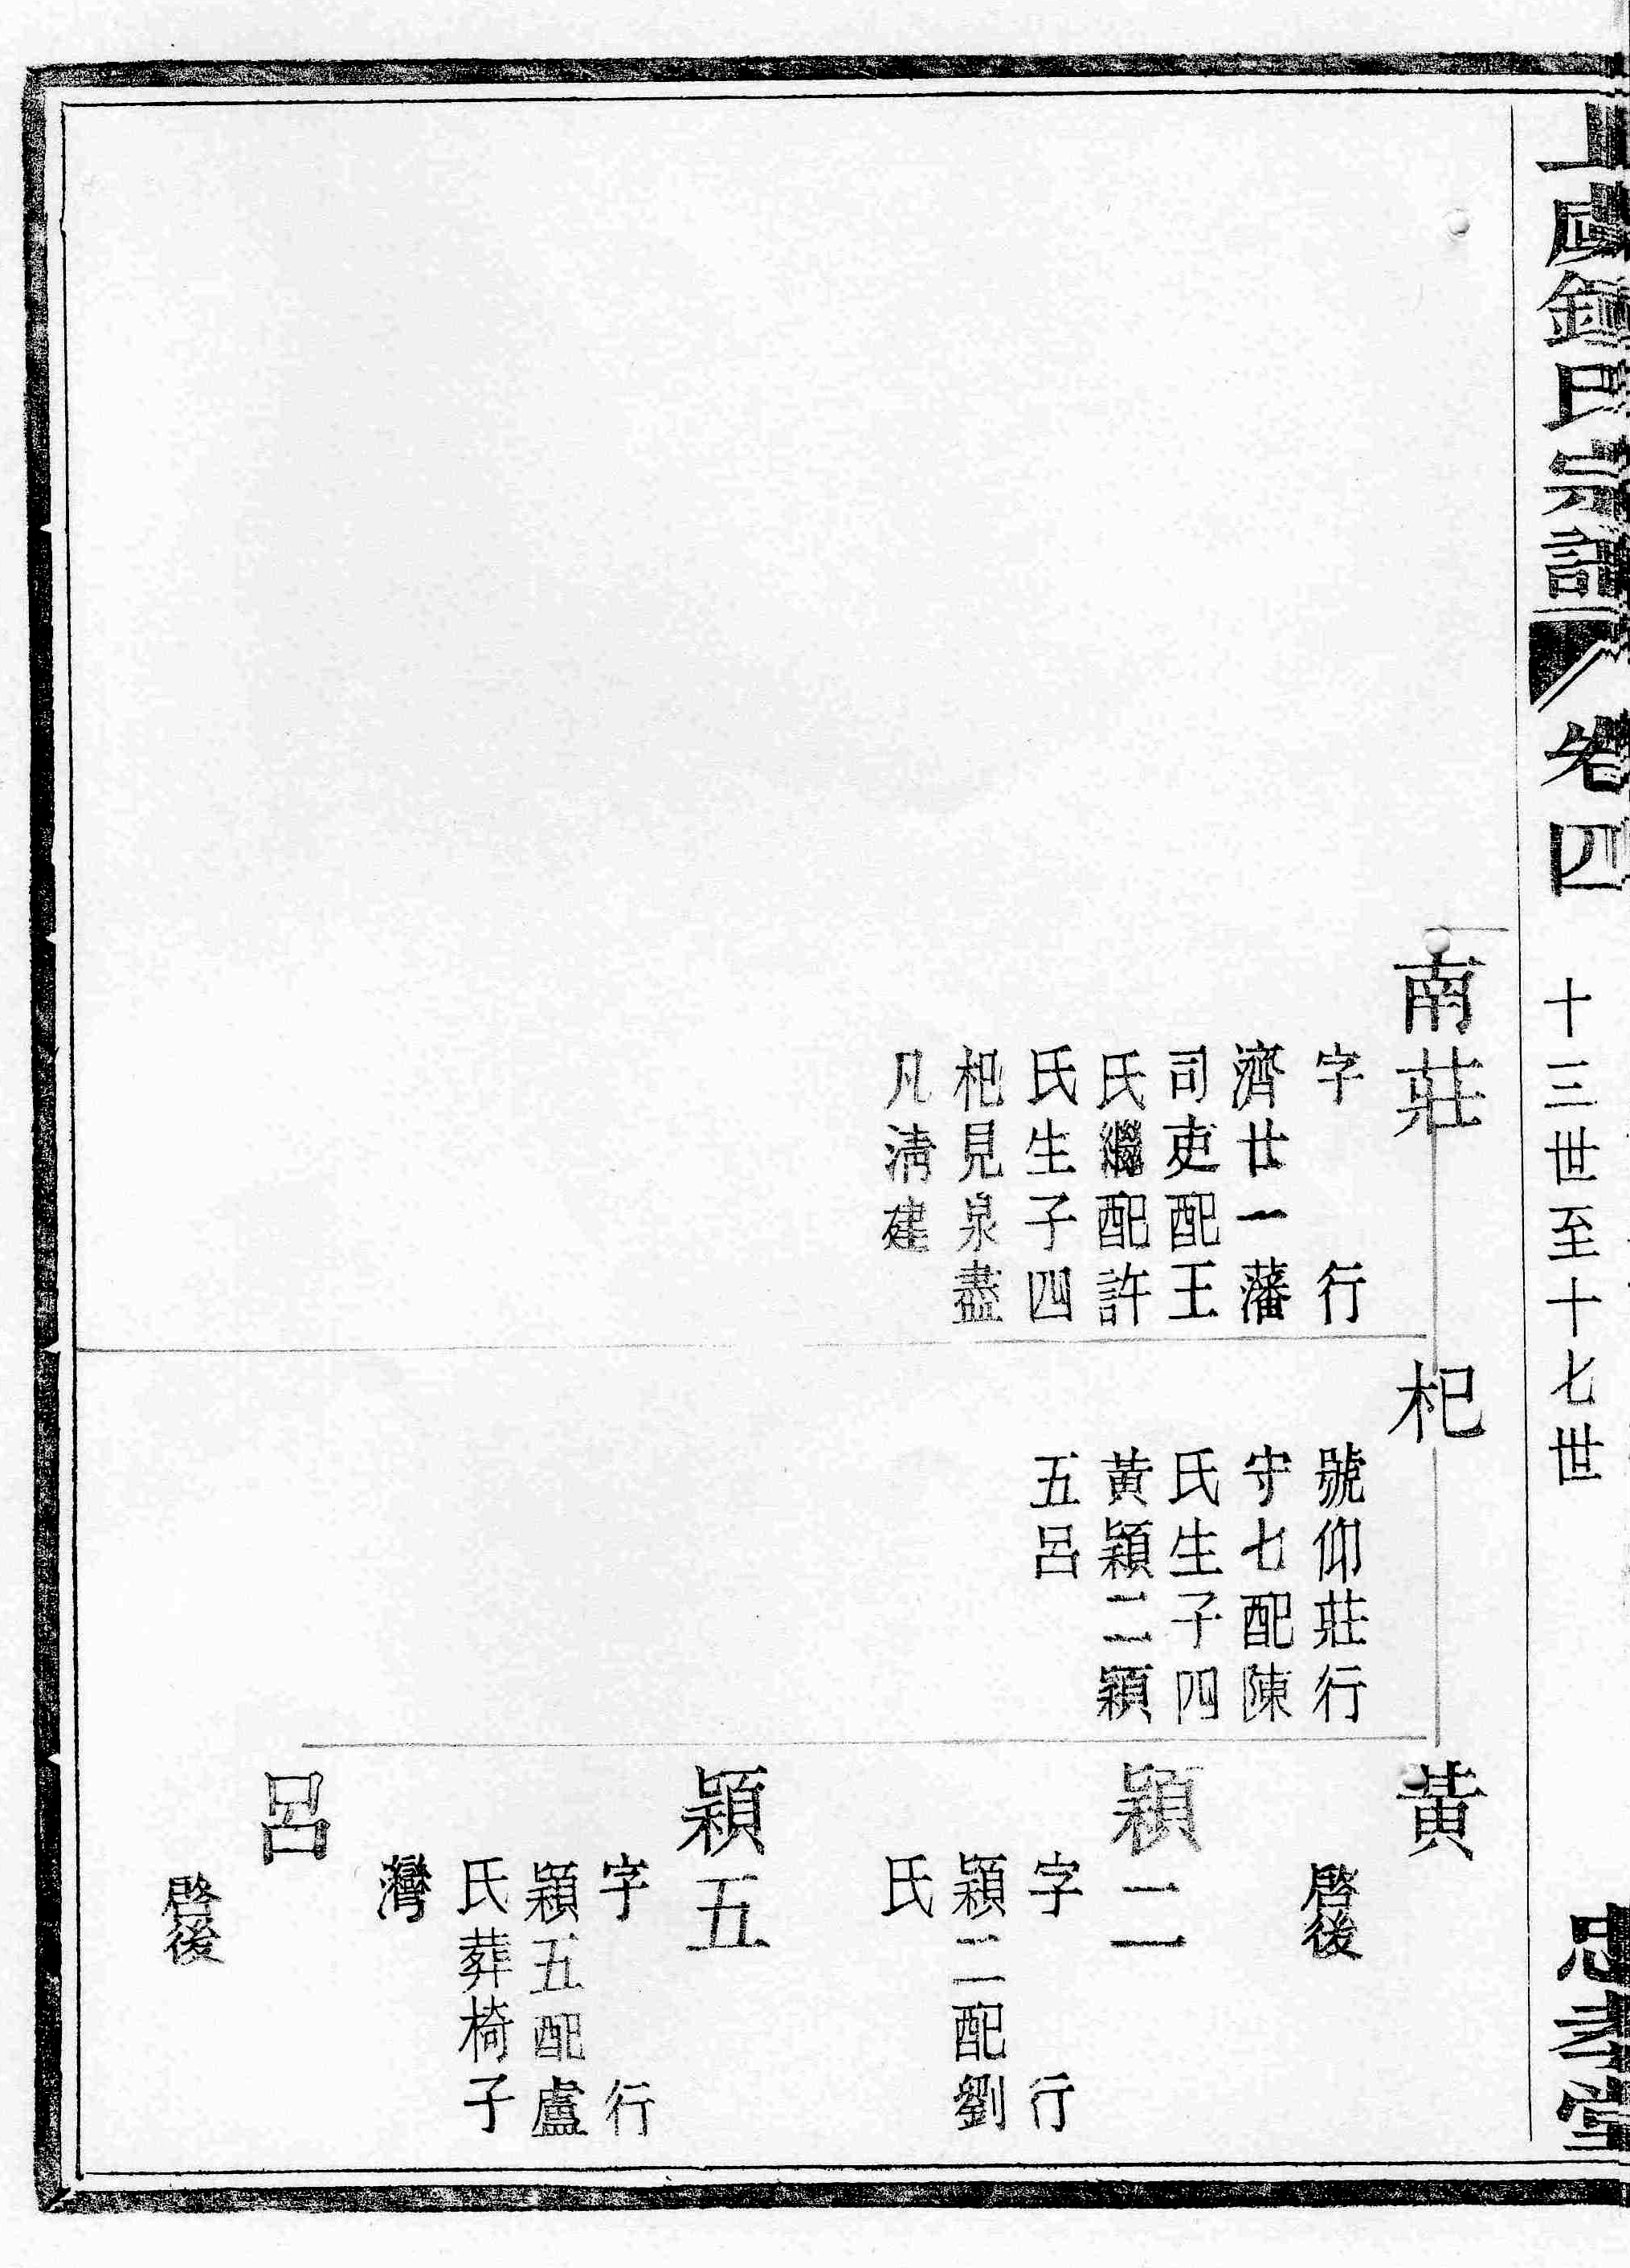 氏宗譜
卷四
十三世至十七世
南莊
字 行
濟廿一藩
司吏配王
氏繼配許
氏生子四
杞見泉盡
凡淸建
杞
號仰莊行
守七配陳
氏生子四
黃穎二穎
五呂
黃
啓後
穎二
字 行
穎二配劉
氏
穎五
字 行
穎五配盧
氏葬椅子
灣
呂
啓後